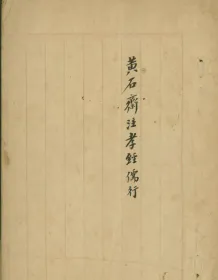 黄石齋注孝經儒行